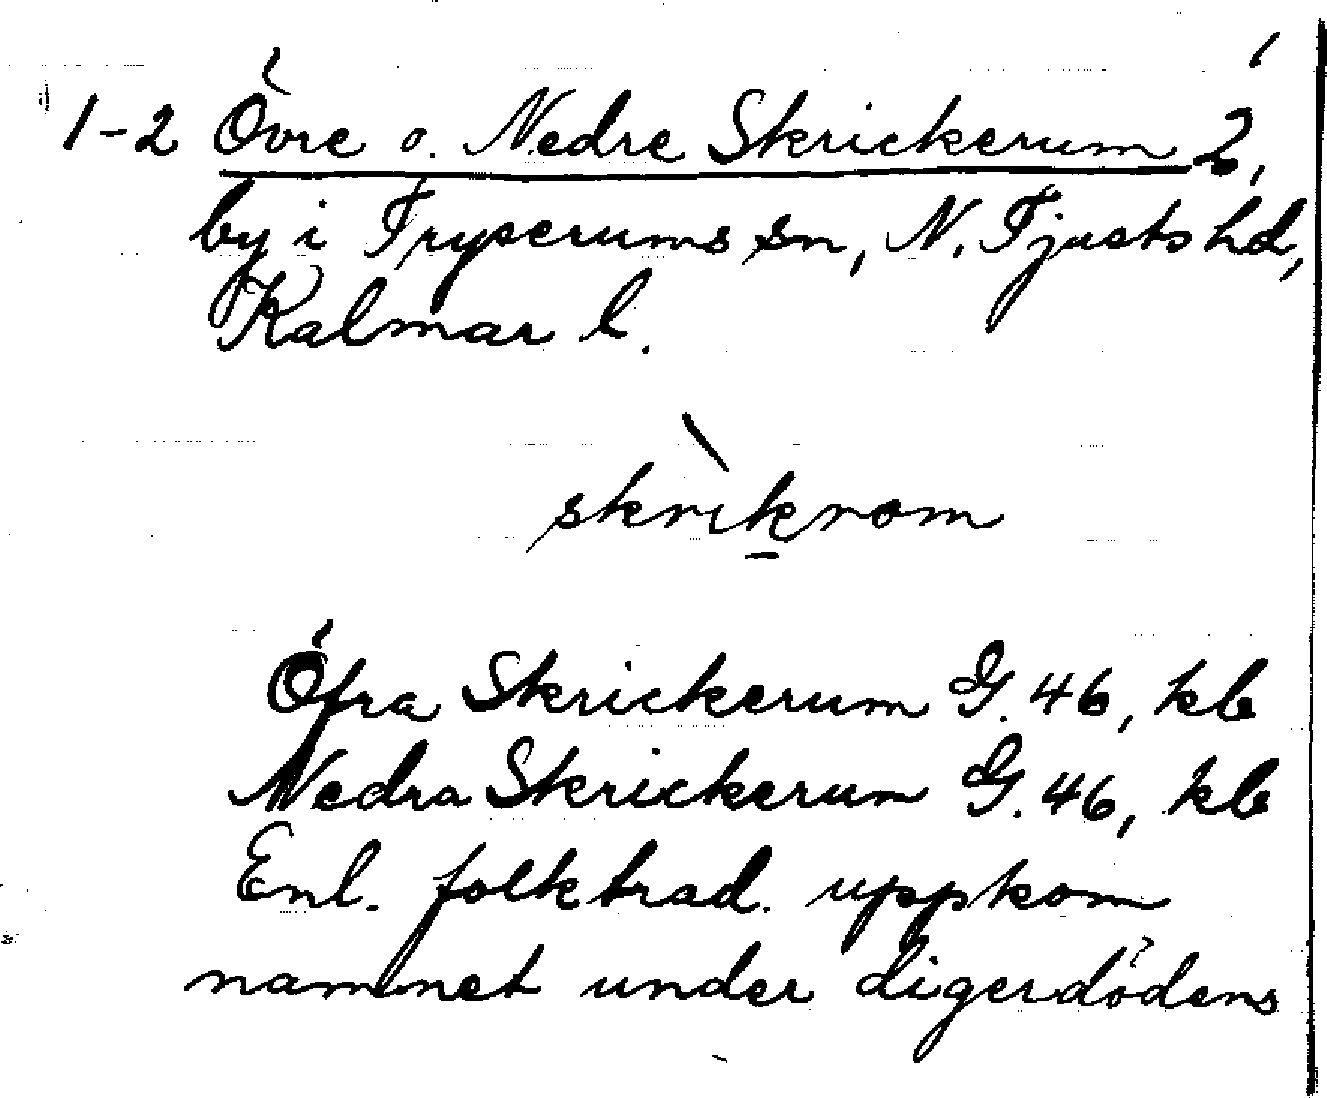 1-2 Övre o. Nedre Skrickerum 2,
by i Tryserums sn, N. Tjusts hd,
Kalmar l.
skrìkrom
Öfra Skrickerum G. 46, kb
Nedra Skrickerum G. 46, kb
Enl. folktrad. uppkom
namnet under digerdödens